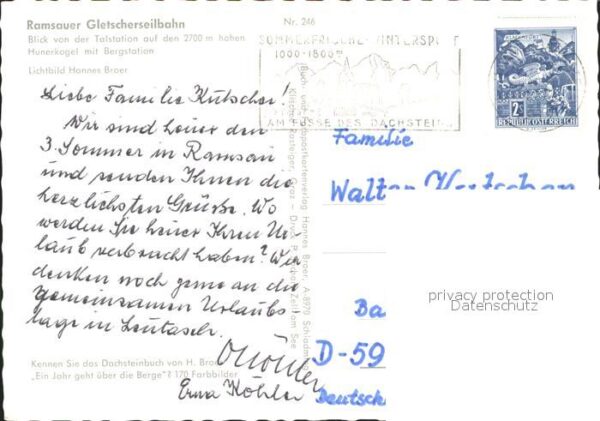 Ramsauer Gletscherseilbahn
Blick von der Talstation auf den 2700 m hohen
Hunerkogel mit Bergstation
Lichtbild Hannes Broer
Nr. 246
SOMMERFRISCHE - WINTERSPORT
1000-1800m
AM FUSSE DES DACHSTEIN
2S
REPUBLIK ÖSTERREICH
Liebe Familie Kutscher!
Wir sind heuer den
3. Sommer in Ramsau
und senden Ihnen die
herzlichsten Grüsse. Wo
werden Sie heuer Ihren Ur-
laub verbracht haben? Wir
denken noch gerne an die
gemeinsamen Urlaubs-
tage in Leutasch.
Erna Köhler
Kennen Sie das Dachsteinbuch von H. Broer
„Ein Jahr geht über die Berge"? 170 Farbbilder
Buch- und Kunstpostkartenverlag Hannes Broer, A-8970 Schladming
Familie
Walter
Ba
D-59
Deutsch
privacy protection
Datenschutz